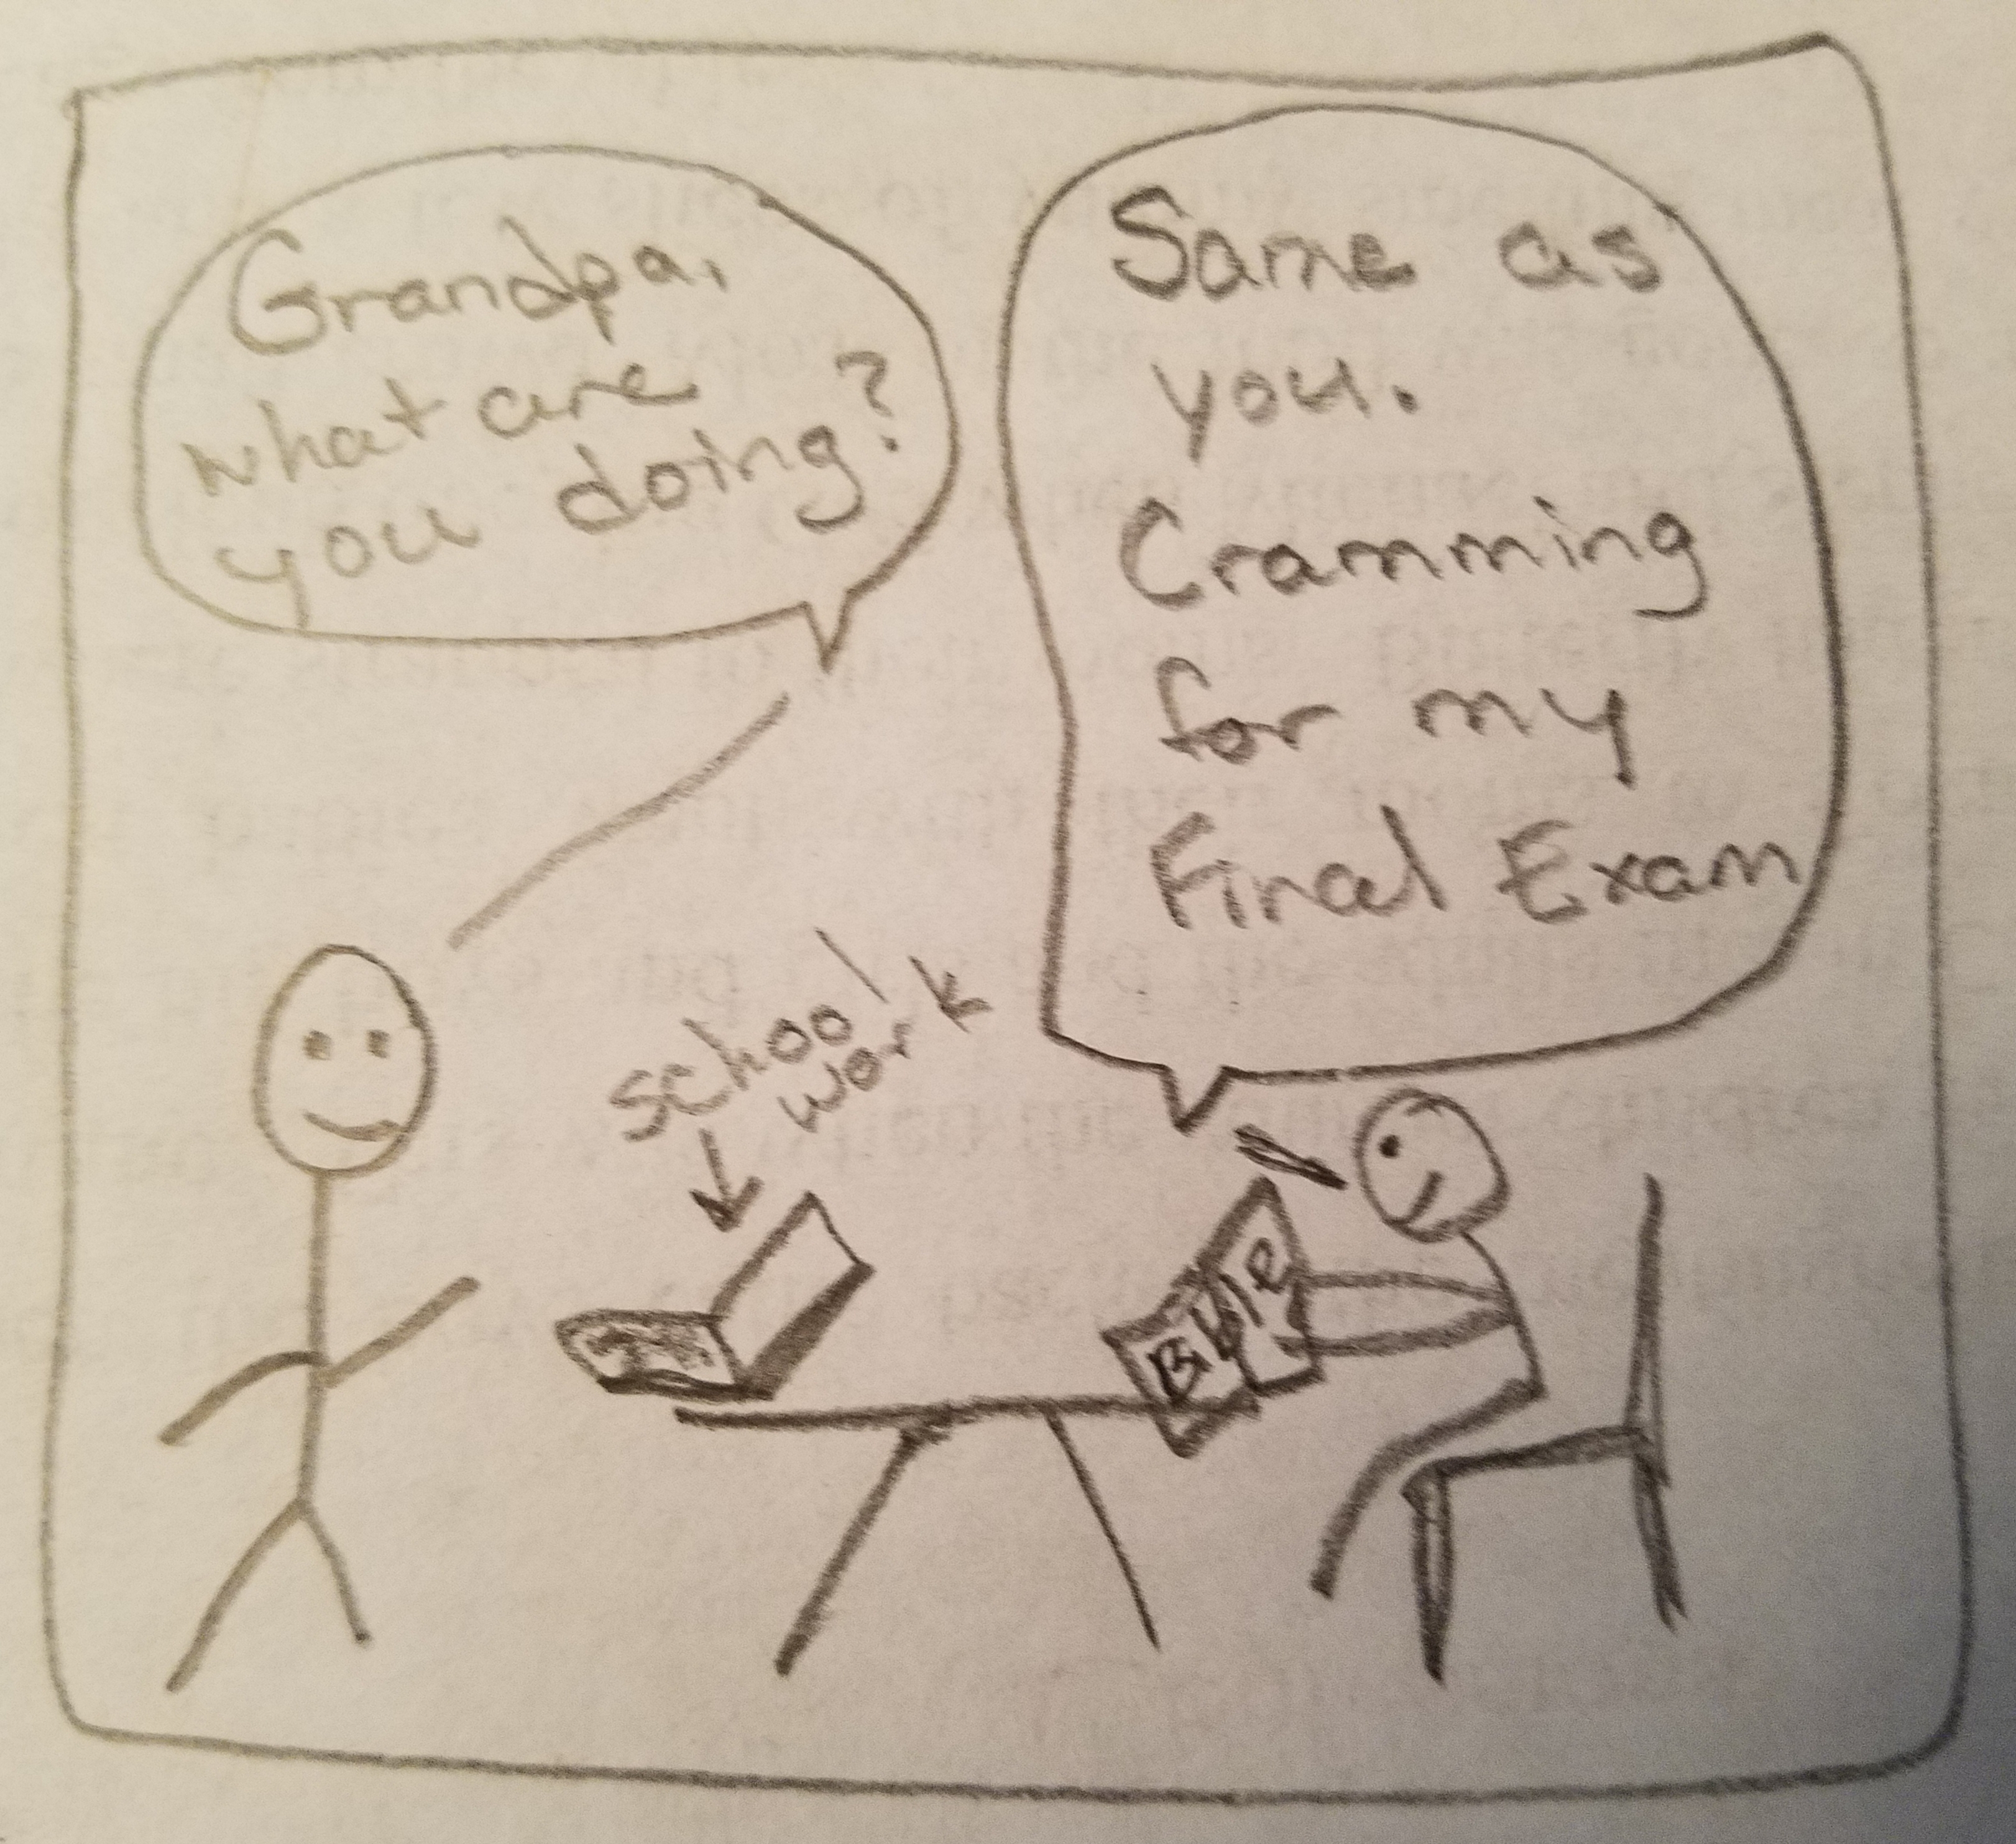 Grandpa,
what are
you doing?
Same as
you.
Cramming
for my
Final Exam
school
work
Bible